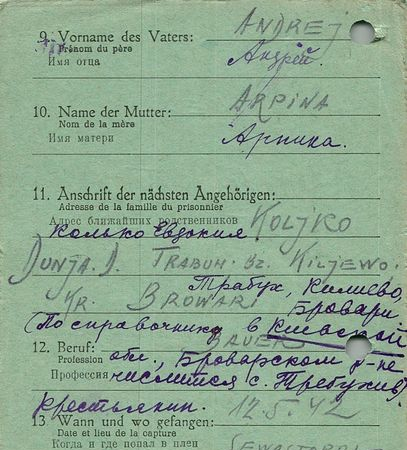 ANDREJ
9. Vorname des Vaters:
Prénom du père
Имя отца
Андрей.
ARPINA
10. Name der Mutter:
Nom de la mère
Имя матери
Арпина.
11. Anschrift der nächsten Angehörigen:
Adresse de la famille du prisonnier
Адрес ближайших родственников
KOLJKO
Колько Евдокия
DUNJA. D. TRABUH. Bz. KILJEWO.
Трабух, Килиево,
KR. BROWARI
Бровари
(По справочнику в Киевской
12. Beruf: BAUER
Profession обл., Броварском р-не
Профессия числится с. Требухив)
Крестьянин. 12.5.42
13. Wann und wo gefangen:
Date et lieu de la capture
Когда и где попал в плен
SEWASTOPOL